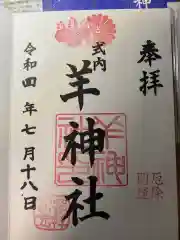 奉拝
式内
羊神社
令和四年七月十八日
羊神社印
厄除
開運